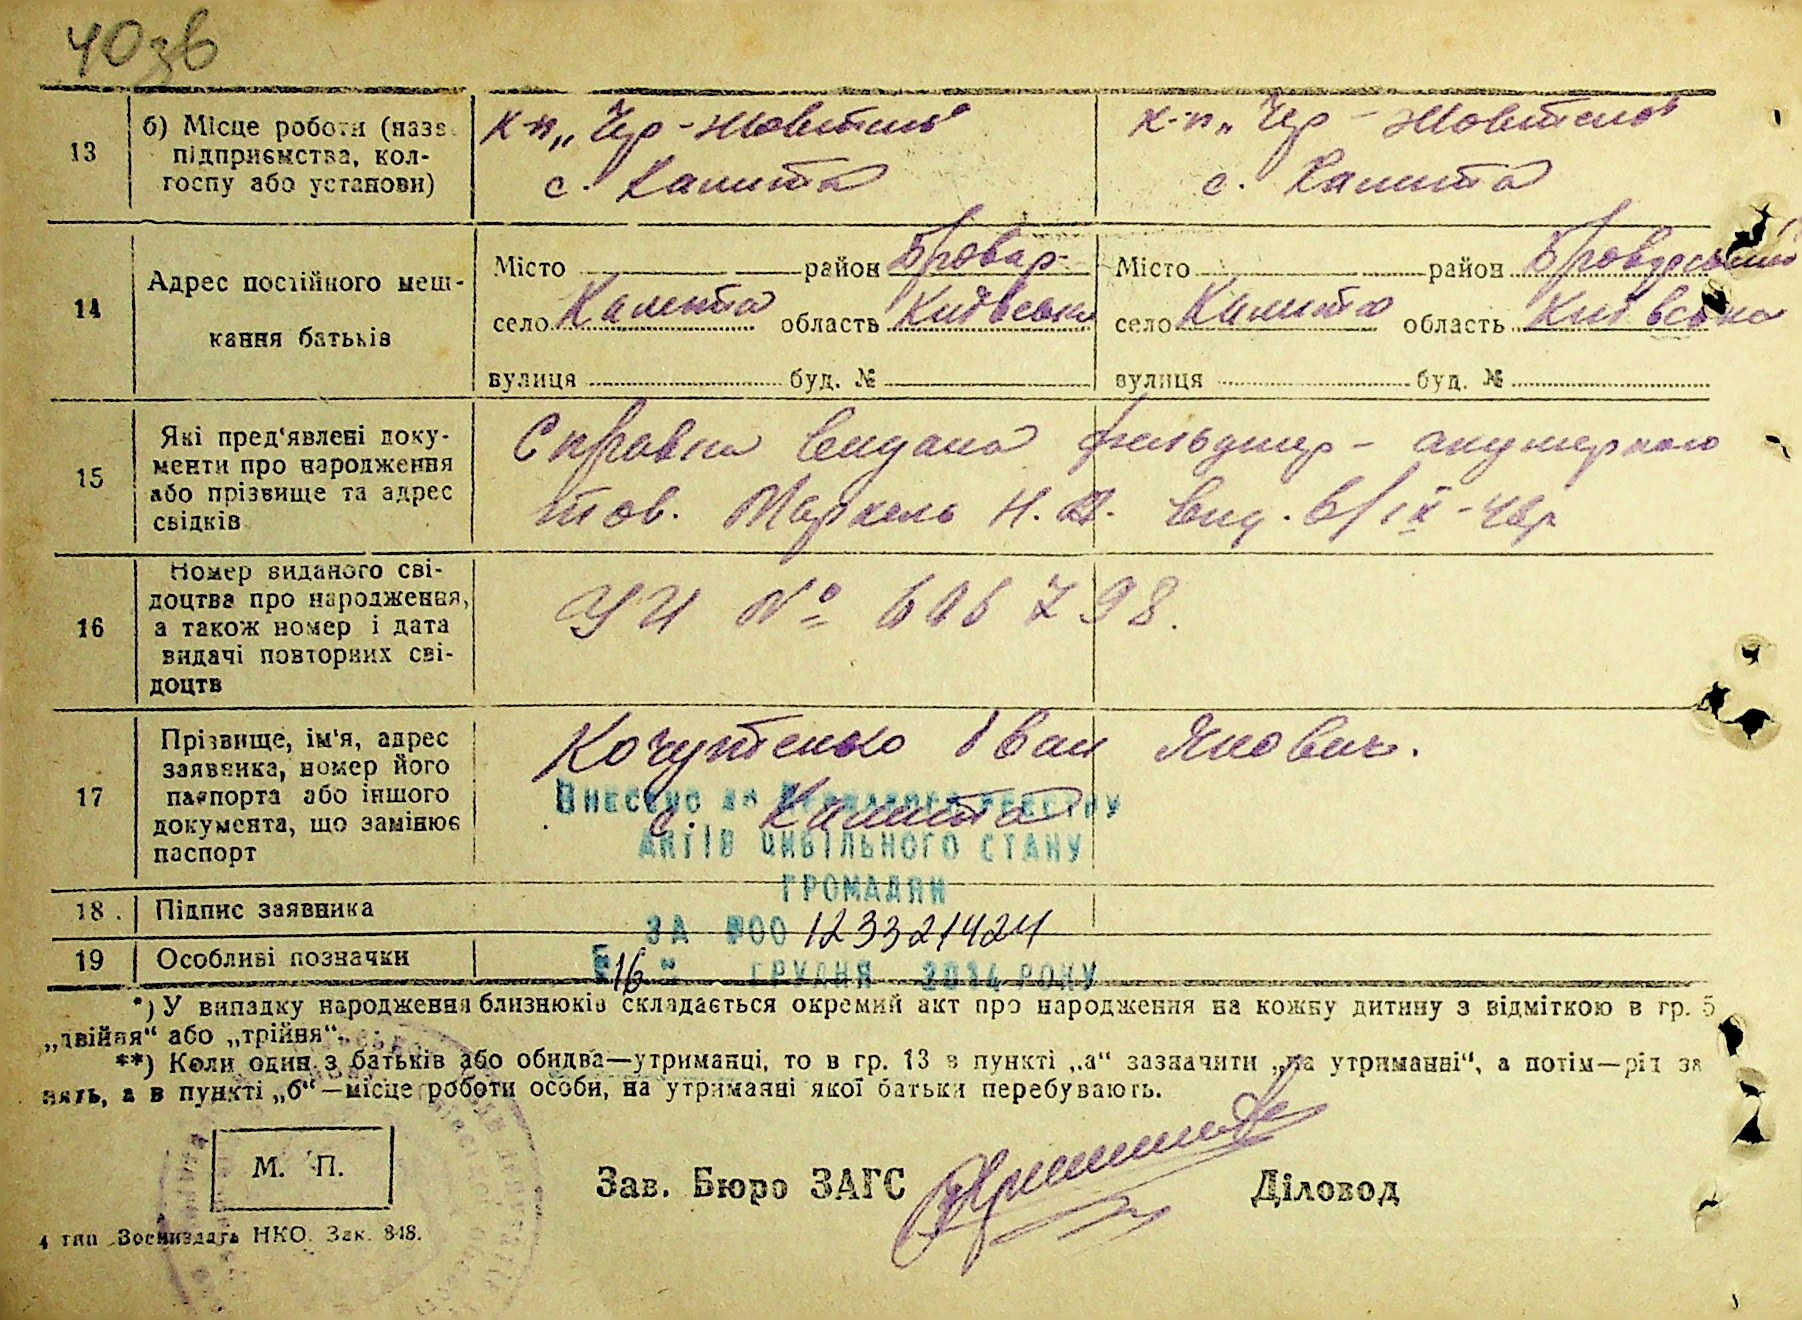 40зв
13
б) Місце роботи (назв.
підприємства, кол-
госпу або установи)
к-п „Чер-Жовтень
с. Калита
к-п „Чер-Жовтень
с. Калита
14
Адрес постійного меш-
кання батьків
Місто район Бровар-
село Калита область Київська
вулиця буд. №
Місто район Броварський
село Калита область Київська
вулиця буд. №
15
Які пред'явлені доку-
менти про народження
або прізвище та адрес
свідків
Справка видана фельдшер-акушеркою
тов. Маркель Н. вид. 6/ІХ-
16
Номер виданого сві-
доцтва про народження,
а також номер і дата
видачі повторних сві-
доцтв
УИ №
17
Прізвище, ім'я, адрес
заявника, номер його
паспорта або іншого
документа, що замінює
паспорт
Кочутенко Іван Якович.
с. Калита
Внесено до Державного реєстру
актів цивільного стану
громадян
18.
Підпис заявника
за №00 123321424
19
Особливі позначки
"16" грудня 2014 року
*) У випадку народження близнюків складається окремий акт про народження на кожну дитину з відміткою в гр. 5
„двійня“ або „трійня“.
**) Коли один з батьків або обидва—утриманці, то в гр. 13 в пункті „а“ зазначити „на утриманні“, а потім—рід за
нять, а в пункті „б“—місце роботи особи, на утриманні якої батьки перебувають.
М. П.
Зав. Бюро ЗАГС
Діловод
4 тип Воениздата НКО. Зак. 848.